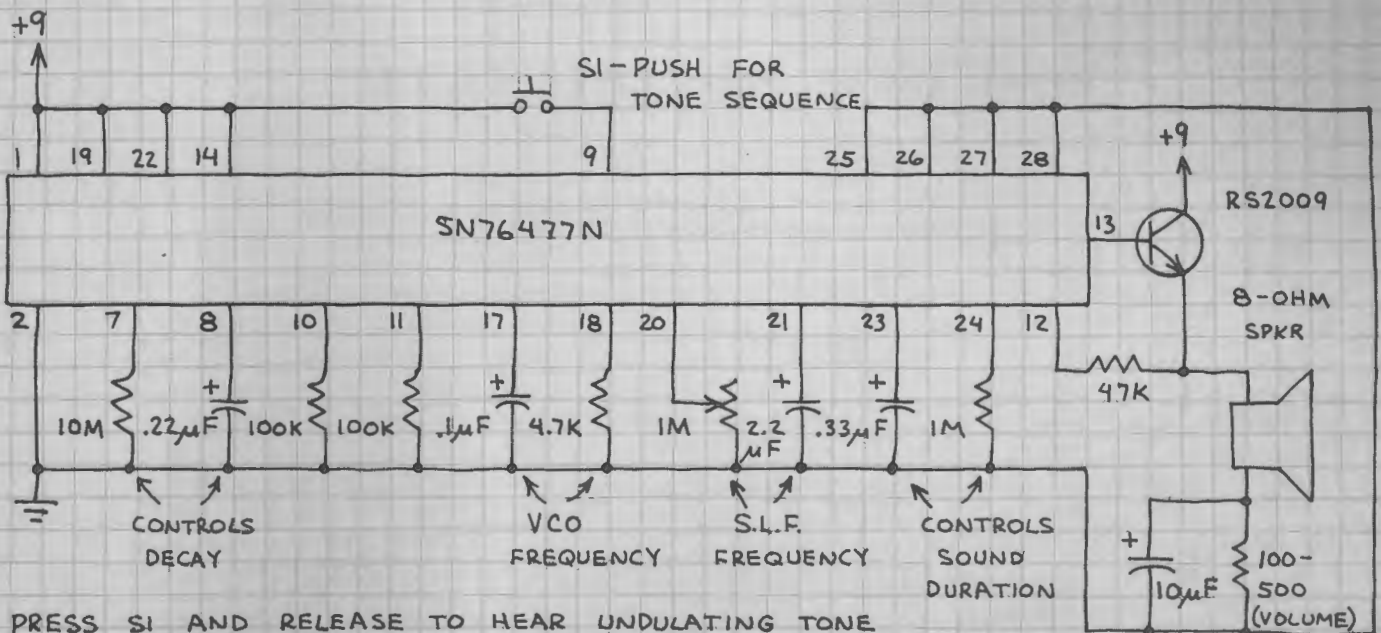 +9
S1-PUSH FOR
TONE SEQUENCE
1 19 22 14 9 25 26 27 28
+9
RS2009
SN76477N
13
8-OHM
SPKR
2 7 8 10 11 17 18 20 21 23 24 12
+ + + +
47K
10M .22µF 100K 100K .1µF 4.7K 1M 2.2 µF .33µF 1M
CONTROLS
DECAY
VCO
FREQUENCY
S.L.F.
FREQUENCY
CONTROLS
SOUND
DURATION
+
10µF
100-
500
(VOLUME)
PRESS S1 AND RELEASE TO HEAR UNDULATING TONE